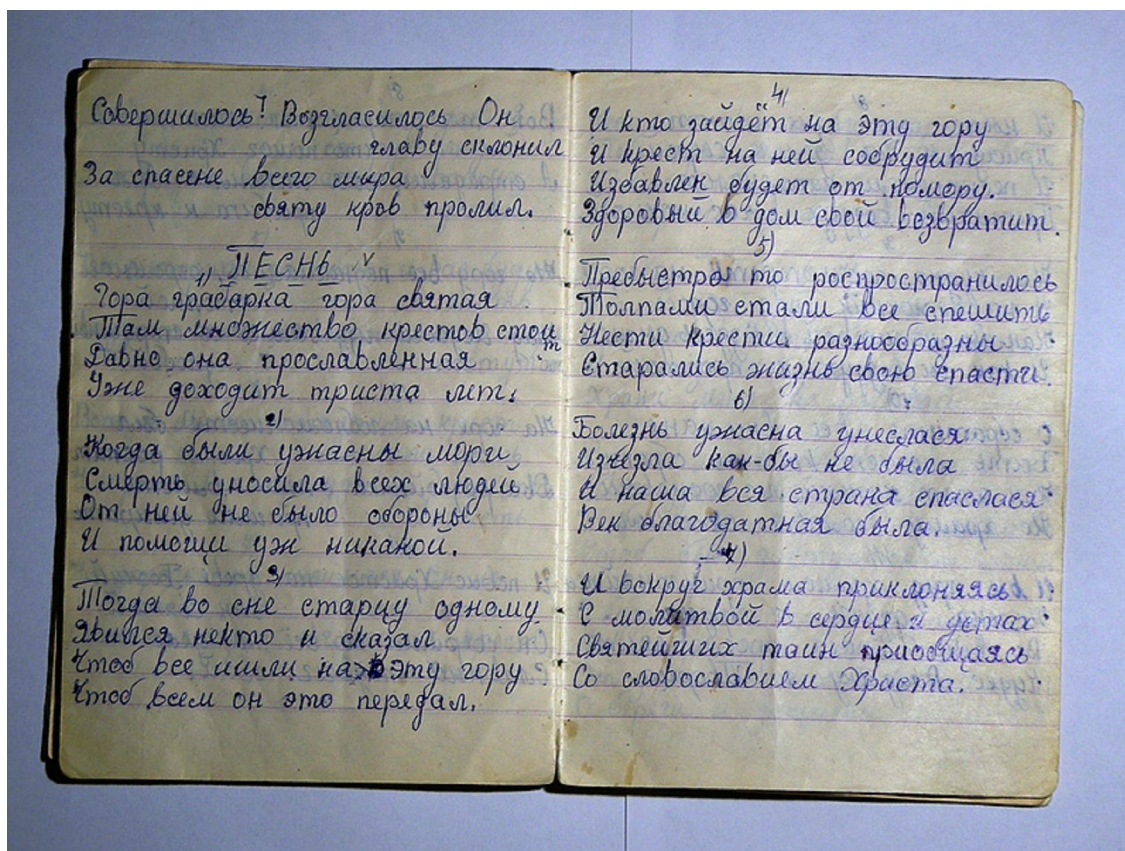 Совершилось! Возгласилось Он
главу склонил
За спасене всего мира
святу кров пролил.
1) ПЕСНЬ
Гора грабарка гора святая
Там множество крестов стоит
Давно она прославленная
Уже доходит триста лит.
2)
Когда были ужасны мори
Смерть уносила всех людей
От ней не было обороны
И помощи уж никакой.
3)
Тогда во сне старцу одному
Явился некто и сказал
Чтоб все ишли на эту гору
Чтоб всем он это передал.
4)
И кто зайдёт на эту гору
И крест на ней собрудит
Избавлен будет от помору.
Здоровый в дом свой возвратит.
5)
Пребыстро то роспространилось
Толпами стали все спешить
Нести крести разнообразны
Старались жизнь свою спасти.
6)
Болезнь ужасна унеслася
Изчезла как-бы не была
И наша вся страна спаслася
Век благодатная была.
7)
И вокруг храма приклоняясь
С молитвой в сердце и устах
Святейших таин приобщаясь
Со словославием Христа.